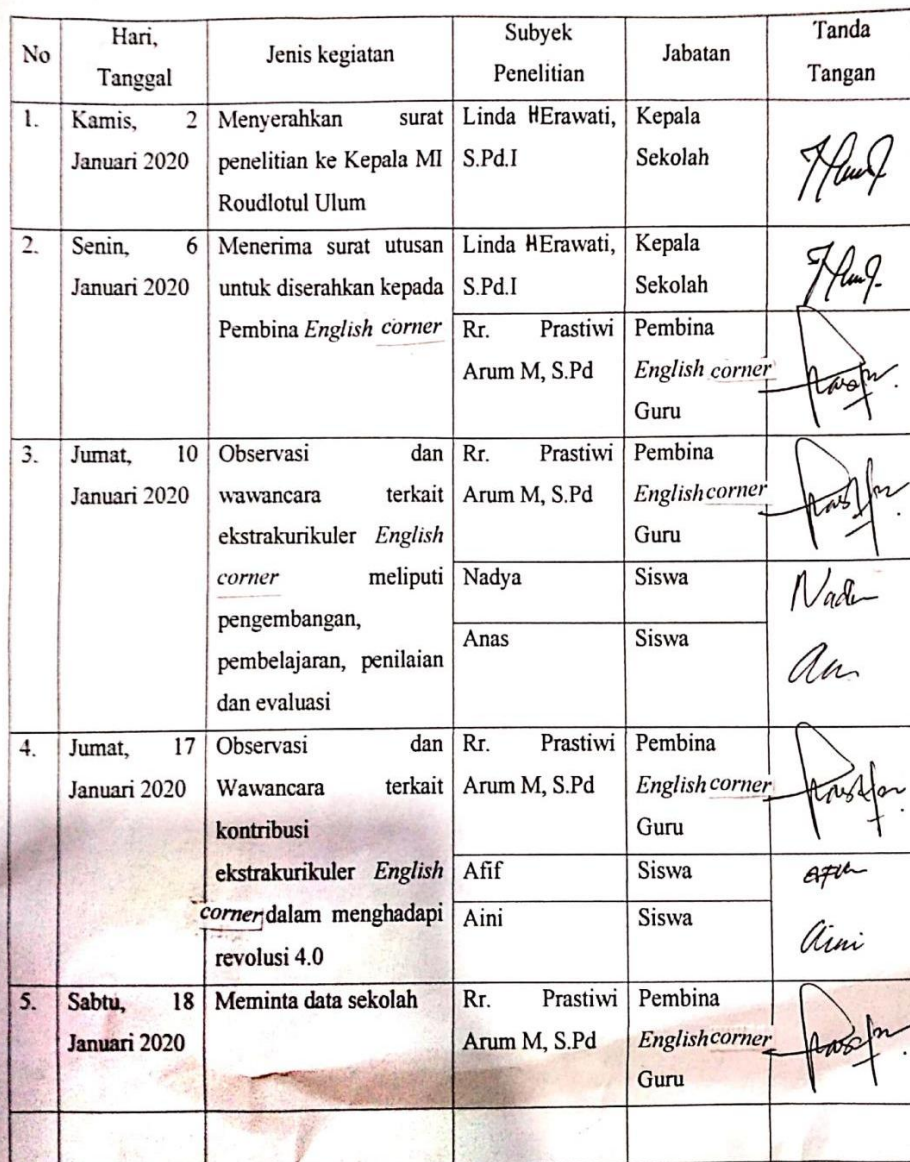 No
Hari,
Tanggal
Jenis kegiatan
Subyek
Penelitian
Jabatan
Tanda
Tangan
1.
Kamis, 2
Januari 2020
Menyerahkan surat
penelitian ke Kepala MI
Roudlotul Ulum
Linda HErawati,
S.Pd.I
Kepala
Sekolah
2.
Senin, 6
Januari 2020
Menerima surat utusan
untuk diserahkan kepada
Pembina English corner
Linda HErawati,
S.Pd.I
Kepala
Sekolah
Rr. Prastiwi
Arum M, S.Pd
Pembina
English corner
Guru
3.
Jumat, 10
Januari 2020
Observasi dan
wawancara terkait
ekstrakurikuler English
corner meliputi
pengembangan,
pembelajaran, penilaian
dan evaluasi
Rr. Prastiwi
Arum M, S.Pd
Pembina
English corner
Guru
Nadya
Siswa
Anas
Siswa
4.
Jumat, 17
Januari 2020
Observasi dan
Wawancara terkait
kontribusi
ekstrakurikuler English
corner dalam menghadapi
revolusi 4.0
Rr. Prastiwi
Arum M, S.Pd
Pembina
English corner
Guru
Afif
Siswa
Aini
Siswa
Aini
5.
Sabtu, 18
Januari 2020
Meminta data sekolah
Rr. Prastiwi
Arum M, S.Pd
Pembina
English corner
Guru